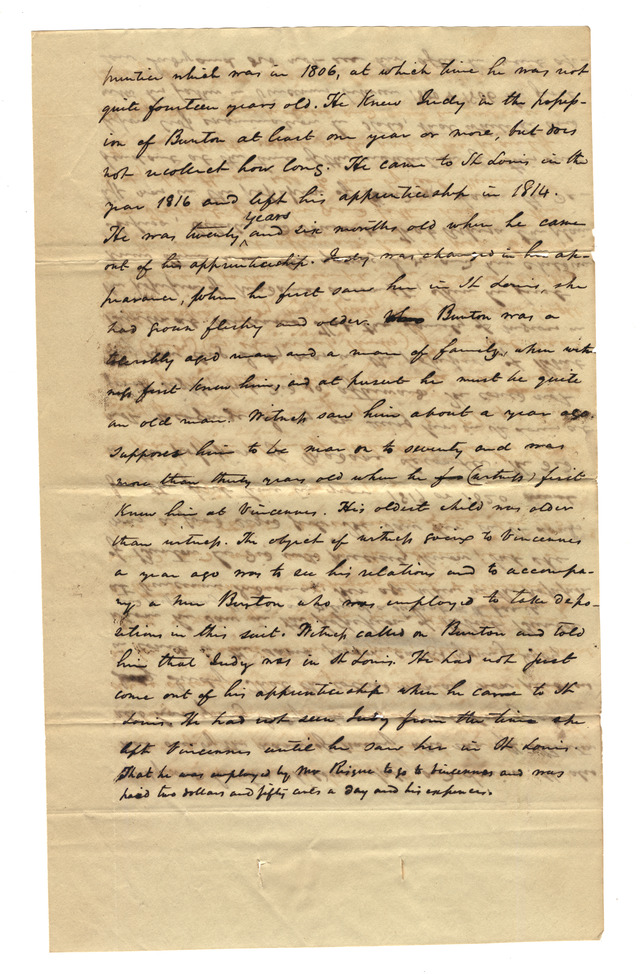 prentice which was in 1806, at which time he was not
quite fourteen years old. He Knew Judy in the possess-
ion of Burton at least one year or more, but does
not recollect how long. He came to St Louis in the
year 1816 and left his apprenticeship in 1814.
years
He was twenty and six months old when he came
out of his apprenticeship. Judy was changed in her ap-
pearance, when he first saw her in St Louis, she
had grown fleshy and older. Burton was a
tolerably aged man and a man of family, when wit-
ness first Knew him, and at present he must be quite
an old man. Witness saw him about a year ago.
Supposes him to be near on to seventy and was
more than thirty years old when he (witness) first
Knew him at Vincennes. His oldest child was older
than witness. The object of witness going to Vincennes
a year ago was to see his relations and to accompa-
ny a Mr Burton who was employed to take depo-
sitions in this suit. Witness called on Burton and told
him that Judy was in St Louis. He had not just
come out of his apprenticeship when he came to St
Louis. He had not seen Judy from the time she
left Vincennes until he saw her in St Louis.
That he was employed by Mr Risque to go to Vincennes and was
paid two dollars and fifty cents a day and his expences.